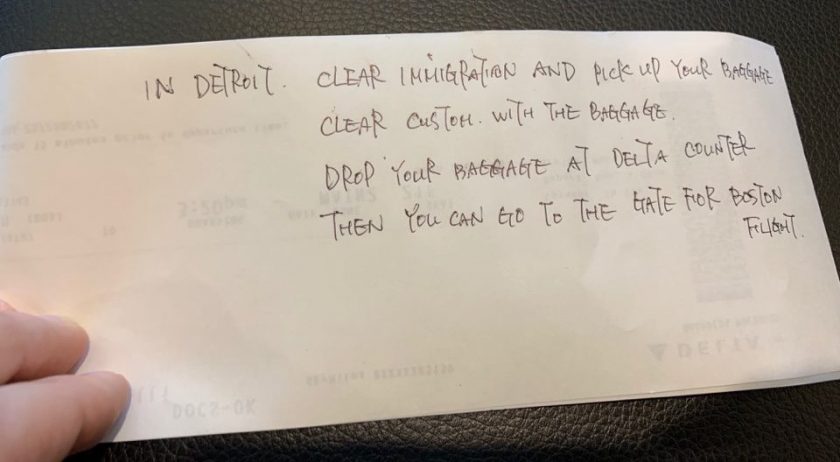 IN DETROIT. CLEAR IMMIGRATION AND PICK UP YOUR BAGGAGE
CLEAR CUSTOM. WITH THE BAGGAGE.
DROP YOUR BAGGAGE AT DELTA COUNTER
THEN YOU CAN GO TO THE GATE FOR BOSTON
FLIGHT.
DELTA
DOCS-OK